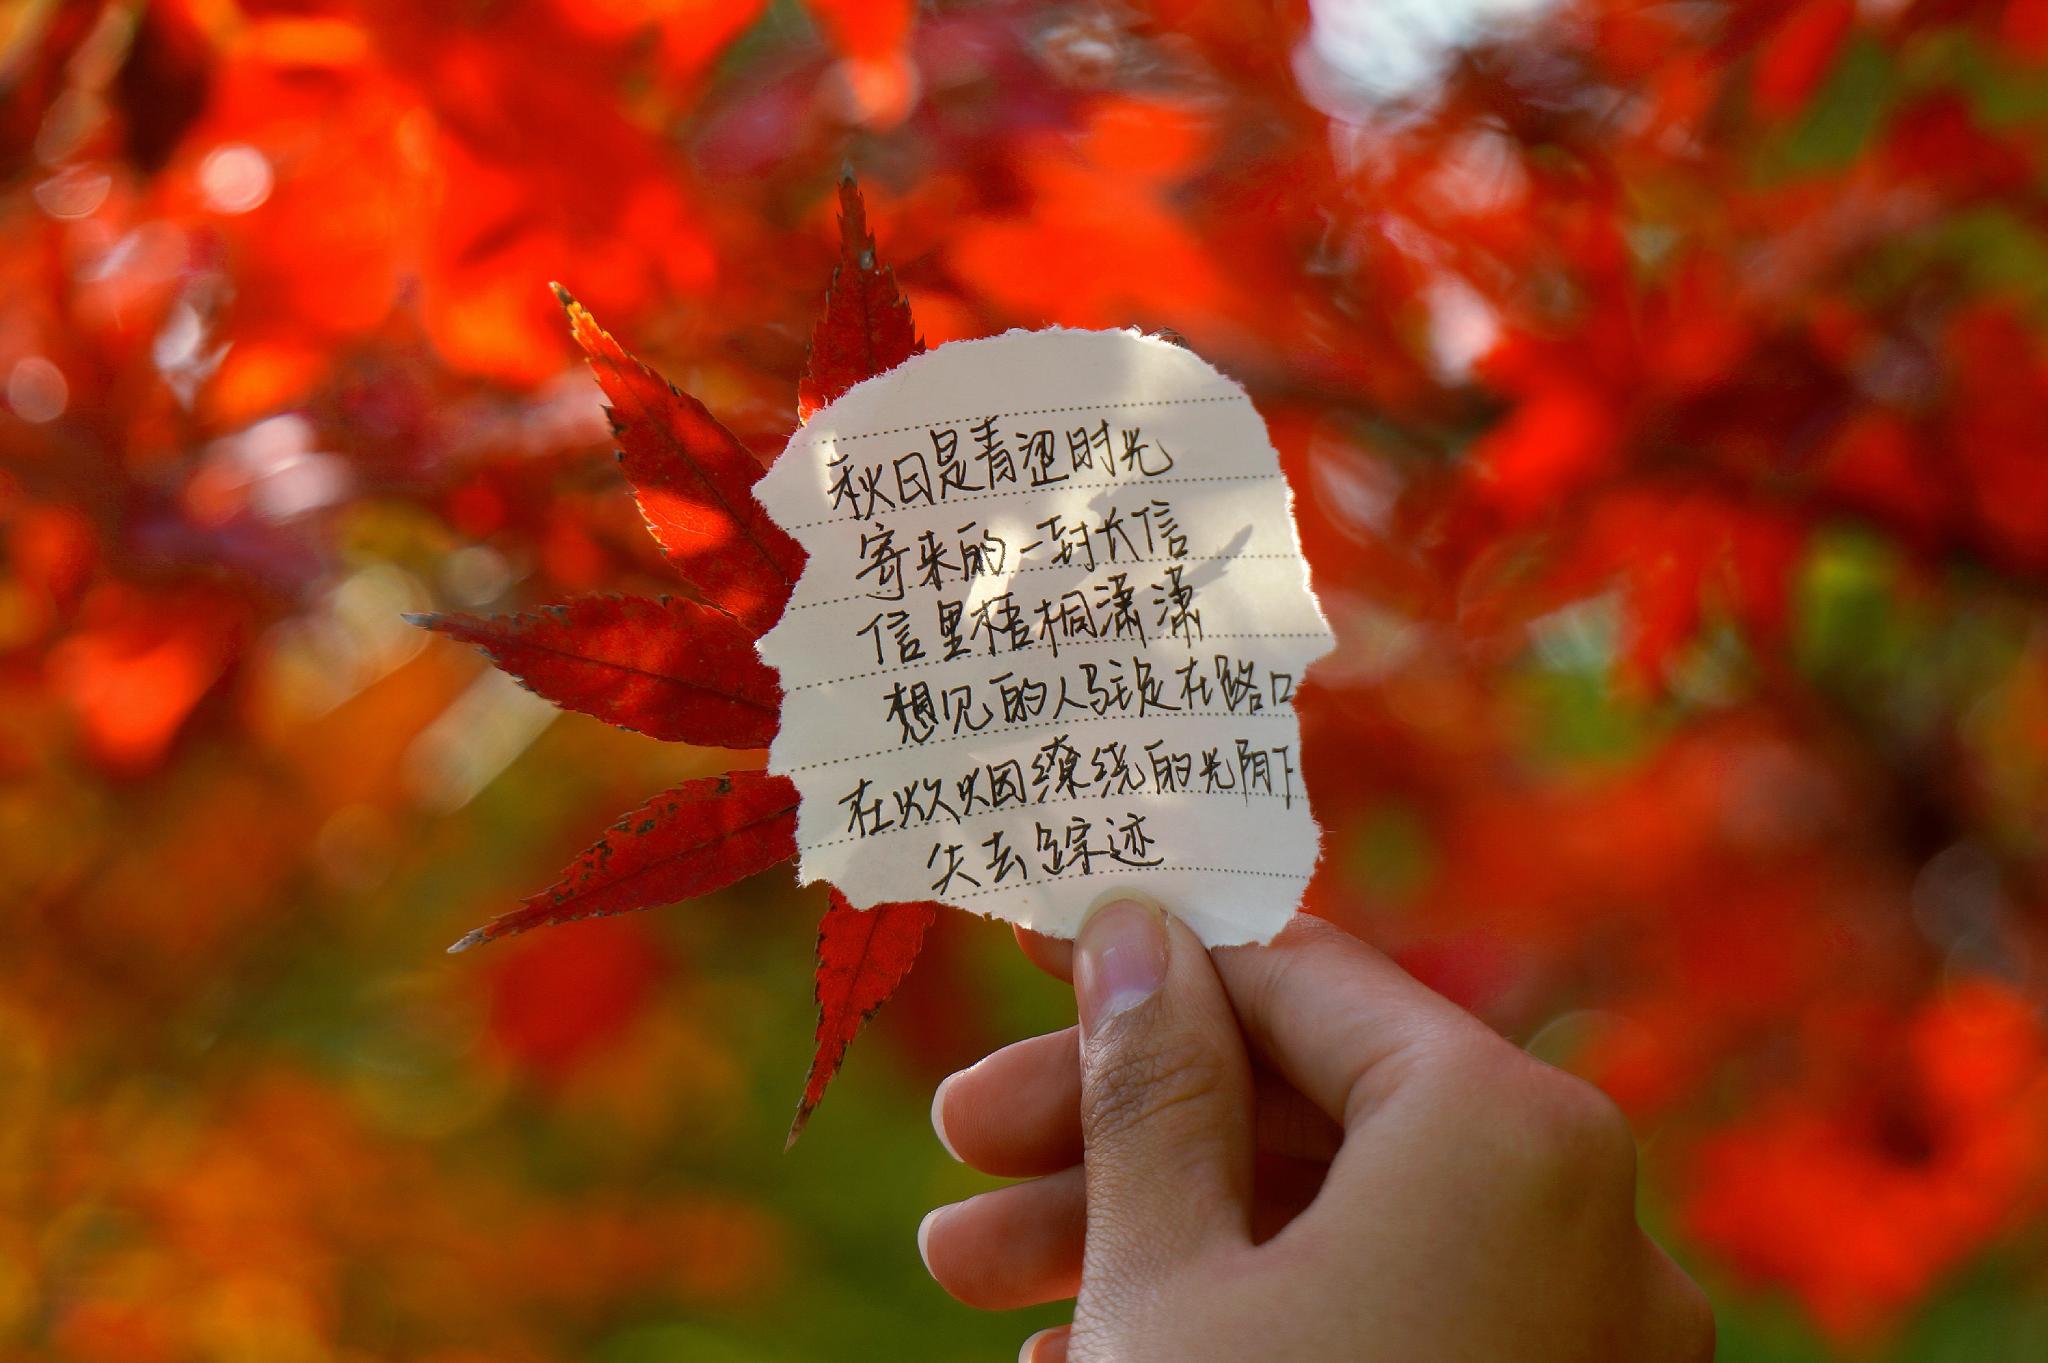 秋日是青涩时光
寄来的一封长信
信里梧桐潇潇
想见的人驻足在路口
在炊烟缭绕的光阴下
失去踪迹